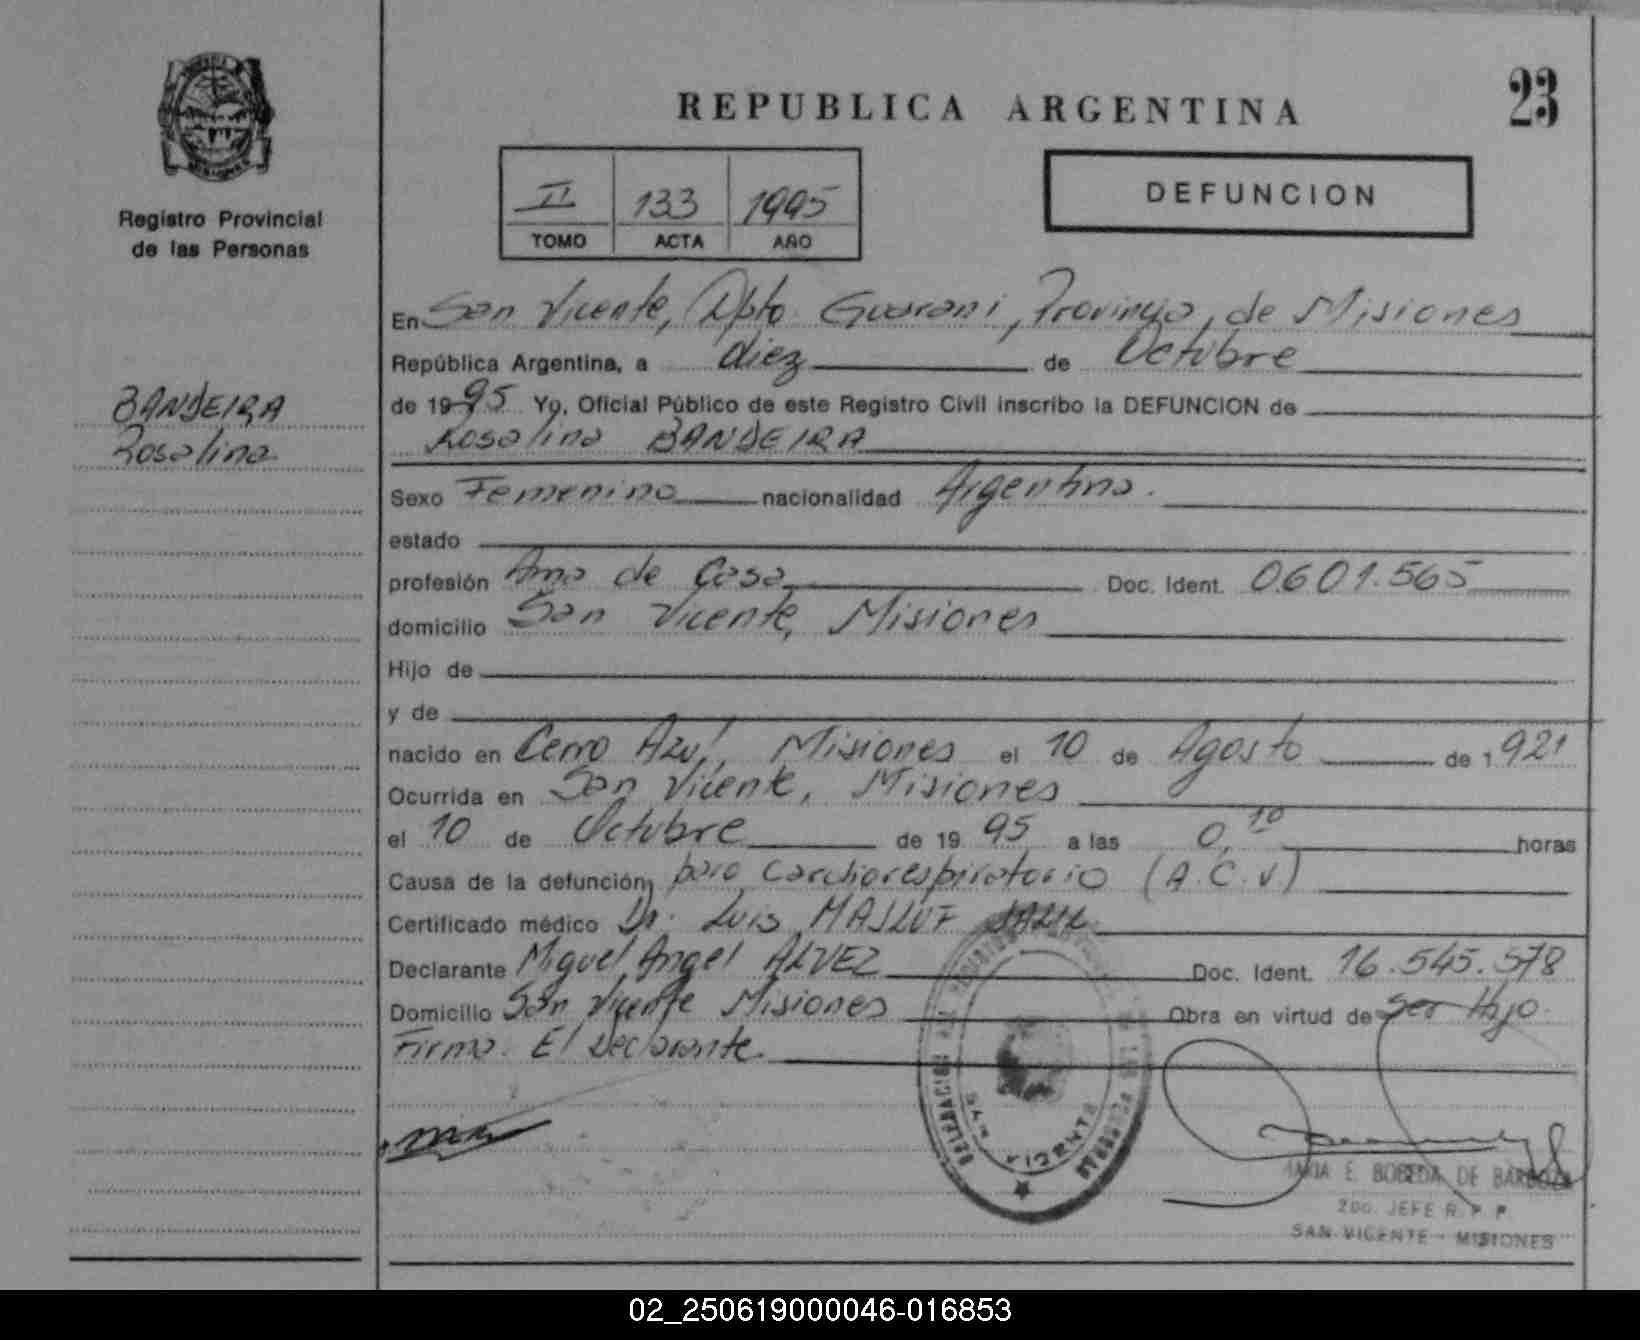 REPUBLICA ARGENTINA
23
Registro Provincial
de las Personas
II 133 1995
TOMO ACTA AÑO
DEFUNCION
BANDEIRA
Rosalina
En San Vicente, Dpto. Guarani, Provincia de Misiones
República Argentina, a diez de Octubre
de 1995 Yo, Oficial Público de este Registro Civil inscribo la DEFUNCION de
Rosalina BANDEIRA
Sexo Femenino nacionalidad Argentina.
estado
profesión Ama de Casa Doc. Ident. 0.601.565
domicilio San Vicente, Misiones
Hijo de
y de
nacido en Cerro Azul, Misiones el 10 de Agosto de 1921
Ocurrida en San Vicente, Misiones
el 10 de Octubre de 1995 a las 0,10 horas
Causa de la defunción, paro Cardiorespiratorio (A.C.V)
Certificado médico Dr. Luis MASLUF
Declarante Miguel Angel ALVEZ Doc. Ident. 16.545.578
Domicilio San Vicente Misiones Obra en virtud de Ser Hijo.
Firma. El Declarante.
SAN VICENTE
E. BOBEDA DE BARBOZA
2DO. JEFE R. P. P.
SAN VICENTE - MISIONES
02_250619000046-016853